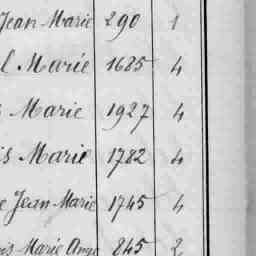 Jean Marie 290 1
l Marie 1685 4
s Marie 1927 4
is Marie 1782 4
e Jean Marie 1745 4
is Marie Ange 845 2